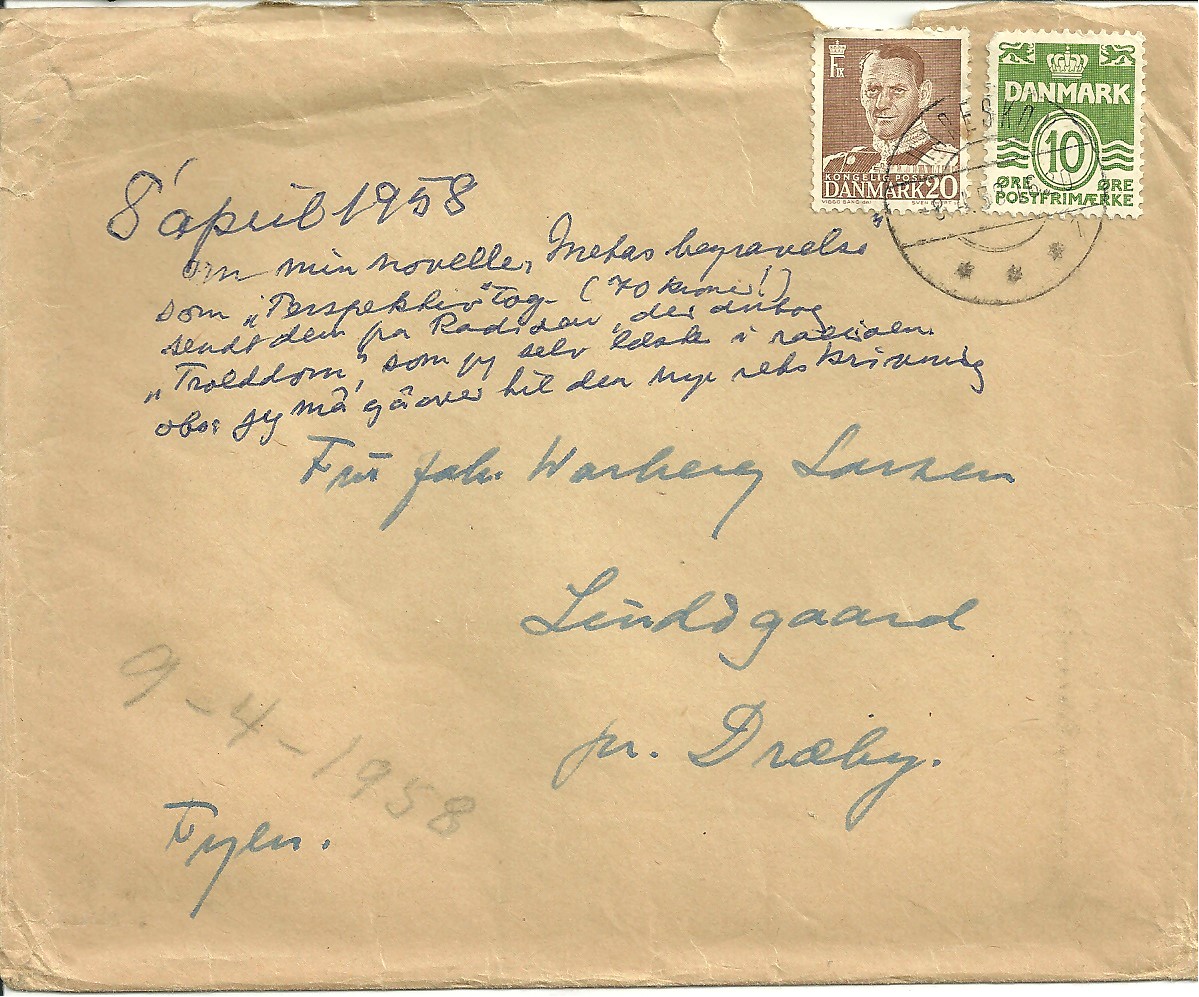 F IX
KONGELIG POST
DANMARK 20
VIGGO BANG del. SVEN
DANMARK
10
ØRE ØRE
POSTFRIMÆRKE
8' april 1958
om min novelle, Metas begravelse
som "Perspektiv" tog. (70 kroner!)
sendt dem fra Radioen, der antog
"Trolddom", som jeg selv læste i radioen.
obs: jeg må gå over til den nye retskrivning
Fru Joh. Warberg Larsen
Lindøgaard
pr. Dræby.
Fyen.
9-4-1958